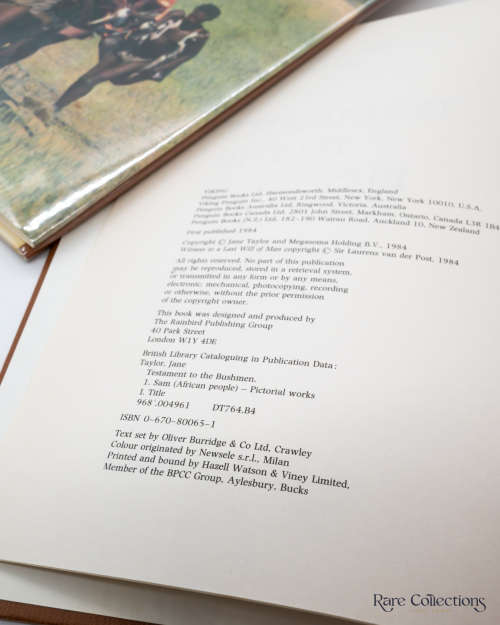 VIKING
Penguin Books Ltd, Harmondsworth, Middlesex, England
Viking Penguin Inc., 40 West 23rd Street, New York, New York 10010, U.S.A.
Penguin Books Australia Ltd, Ringwood, Victoria, Australia
Penguin Books Canada Ltd, 2801 John Street, Markham, Ontario, Canada L3R 1B4
Penguin Books (N.Z.) Ltd, 182–190 Wairau Road, Auckland 10, New Zealand
First published 1984
Copyright © Jane Taylor and Meganoma Holding B.V., 1984
Witness to a Last Will of Man copyright © Sir Laurens van der Post, 1984
All rights reserved. No part of this publication
may be reproduced, stored in a retrieval system,
or transmitted in any form or by any means,
electronic, mechanical, photocopying, recording
or otherwise, without the prior permission
of the copyright owner.
This book was designed and produced by
The Rainbird Publishing Group
40 Park Street
London W1Y 4DE
British Library Cataloguing in Publication Data:
Taylor, Jane
Testament to the Bushmen.
1. Sam (African people) – Pictorial works
I. Title
968'.004961 DT764.B4
ISBN 0-670-80065-1
Text set by Oliver Burridge & Co Ltd, Crawley
Colour originated by Newsele s.r.l., Milan
Printed and bound by Hazell Watson & Viney Limited,
Member of the BPCC Group, Aylesbury, Bucks
Rare Collections